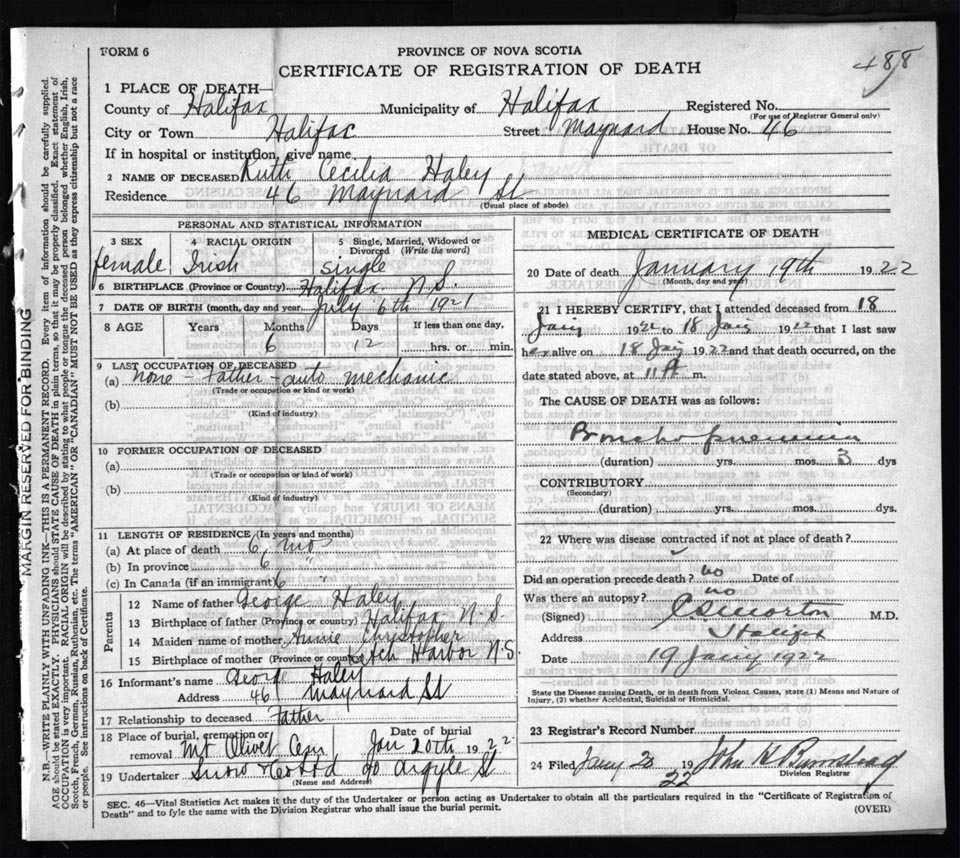 FORM 6
PROVINCE OF NOVA SCOTIA
CERTIFICATE OF REGISTRATION OF DEATH
488
1 PLACE OF DEATH—
County of Halifax Municipality of Halifax Registered No.
(For use of Registrar General only)
City or Town Halifax Street Maynard House No. 46
If in hospital or institution, give name
2 NAME OF DECEASED Ruth Cecilia Haley
Residence 46 Maynard St
(Usual place of abode)
PERSONAL AND STATISTICAL INFORMATION
3 SEX 4 RACIAL ORIGIN 5 Single, Married, Widowed or Divorced (Write the word)
female Irish single
6 BIRTHPLACE (Province or Country) Halifax N.S.
7 DATE OF BIRTH (month, day and year) July 6th 1921
8 AGE Years Months Days If less than one day,
6 12 hrs. or min.
9 LAST OCCUPATION OF DECEASED
(a) none - Father - auto mechanic
(Trade or occupation or kind of work)
(b)
(Kind of industry)
10 FORMER OCCUPATION OF DECEASED
(a)
(Trade or occupation or kind of work)
(b)
(Kind of industry)
11 LENGTH OF RESIDENCE (In years and months)
(a) At place of death 6 mos
(b) In province 6 "
(c) In Canada (if an immigrant) 6
Parents
12 Name of father George Haley
13 Birthplace of father (Province or country) Halifax N.S.
14 Maiden name of mother Annie Christopher
15 Birthplace of mother (Province or country) Ketch Harbor N.S.
16 Informant's name George Haley
Address 46 Maynard St
17 Relationship to deceased Father
18 Place of burial, cremation or removal Mt Olivet Cem Date of burial Jan 20th 1922
19 Undertaker Snow & Co Ltd 90 Argyle St
(Name and Address)
MEDICAL CERTIFICATE OF DEATH
20 Date of death January 19th 1922
(Month, day and year)
21 I HEREBY CERTIFY, that I attended deceased from 18
Jany 1922 to 18 Jany 1922 that I last saw
her alive on 18 Jany 1922 and that death occurred, on the
date stated above, at 11 A m.
The CAUSE OF DEATH was as follows:
Broncho pneumonia
(duration) yrs. mos. 3 dys
CONTRIBUTORY
(Secondary)
(duration) yrs. mos. dys.
22 Where was disease contracted if not at place of death?
Did an operation precede death? no Date of
Was there an autopsy? no
(Signed) C S Morton M.D.
Address Halifax
Date 19 Jany 1922
State the Disease causing Death, or in death from Violent Causes, state (1) Means and Nature of
Injury, (2) whether Accidental, Suicidal or Homicidal.
23 Registrar's Record Number
24 Filed Jany 20 1922 John H Barnstead
Division Registrar
SEC. 46—Vital Statistics Act makes it the duty of the Undertaker or person acting as Undertaker to obtain all the particulars required in the "Certificate of Registration of
Death" and to fyle the same with the Division Registrar who shall issue the burial permit. (OVER)
MARGIN RESERVED FOR BINDING
N.B.—WRITE PLAINLY WITH UNFADING INK—THIS IS A PERMANENT RECORD. Every item of information should be carefully supplied.
AGE should be stated EXACTLY. PHYSICIANS should STATE CAUSE OF DEATH in plain terms, so that it may be properly classified. Exact statement of
OCCUPATION is very important. RACIAL ORIGIN will be described by stating to what people or tongue the deceased person belonged whether English, Irish,
Scotch, French, German, Russian, Ruthenian, etc. The terms "AMERICAN" or "CANADIAN" MUST NOT BE USED as they express citizenship but not a race
or people. See instructions on back of Certificate.